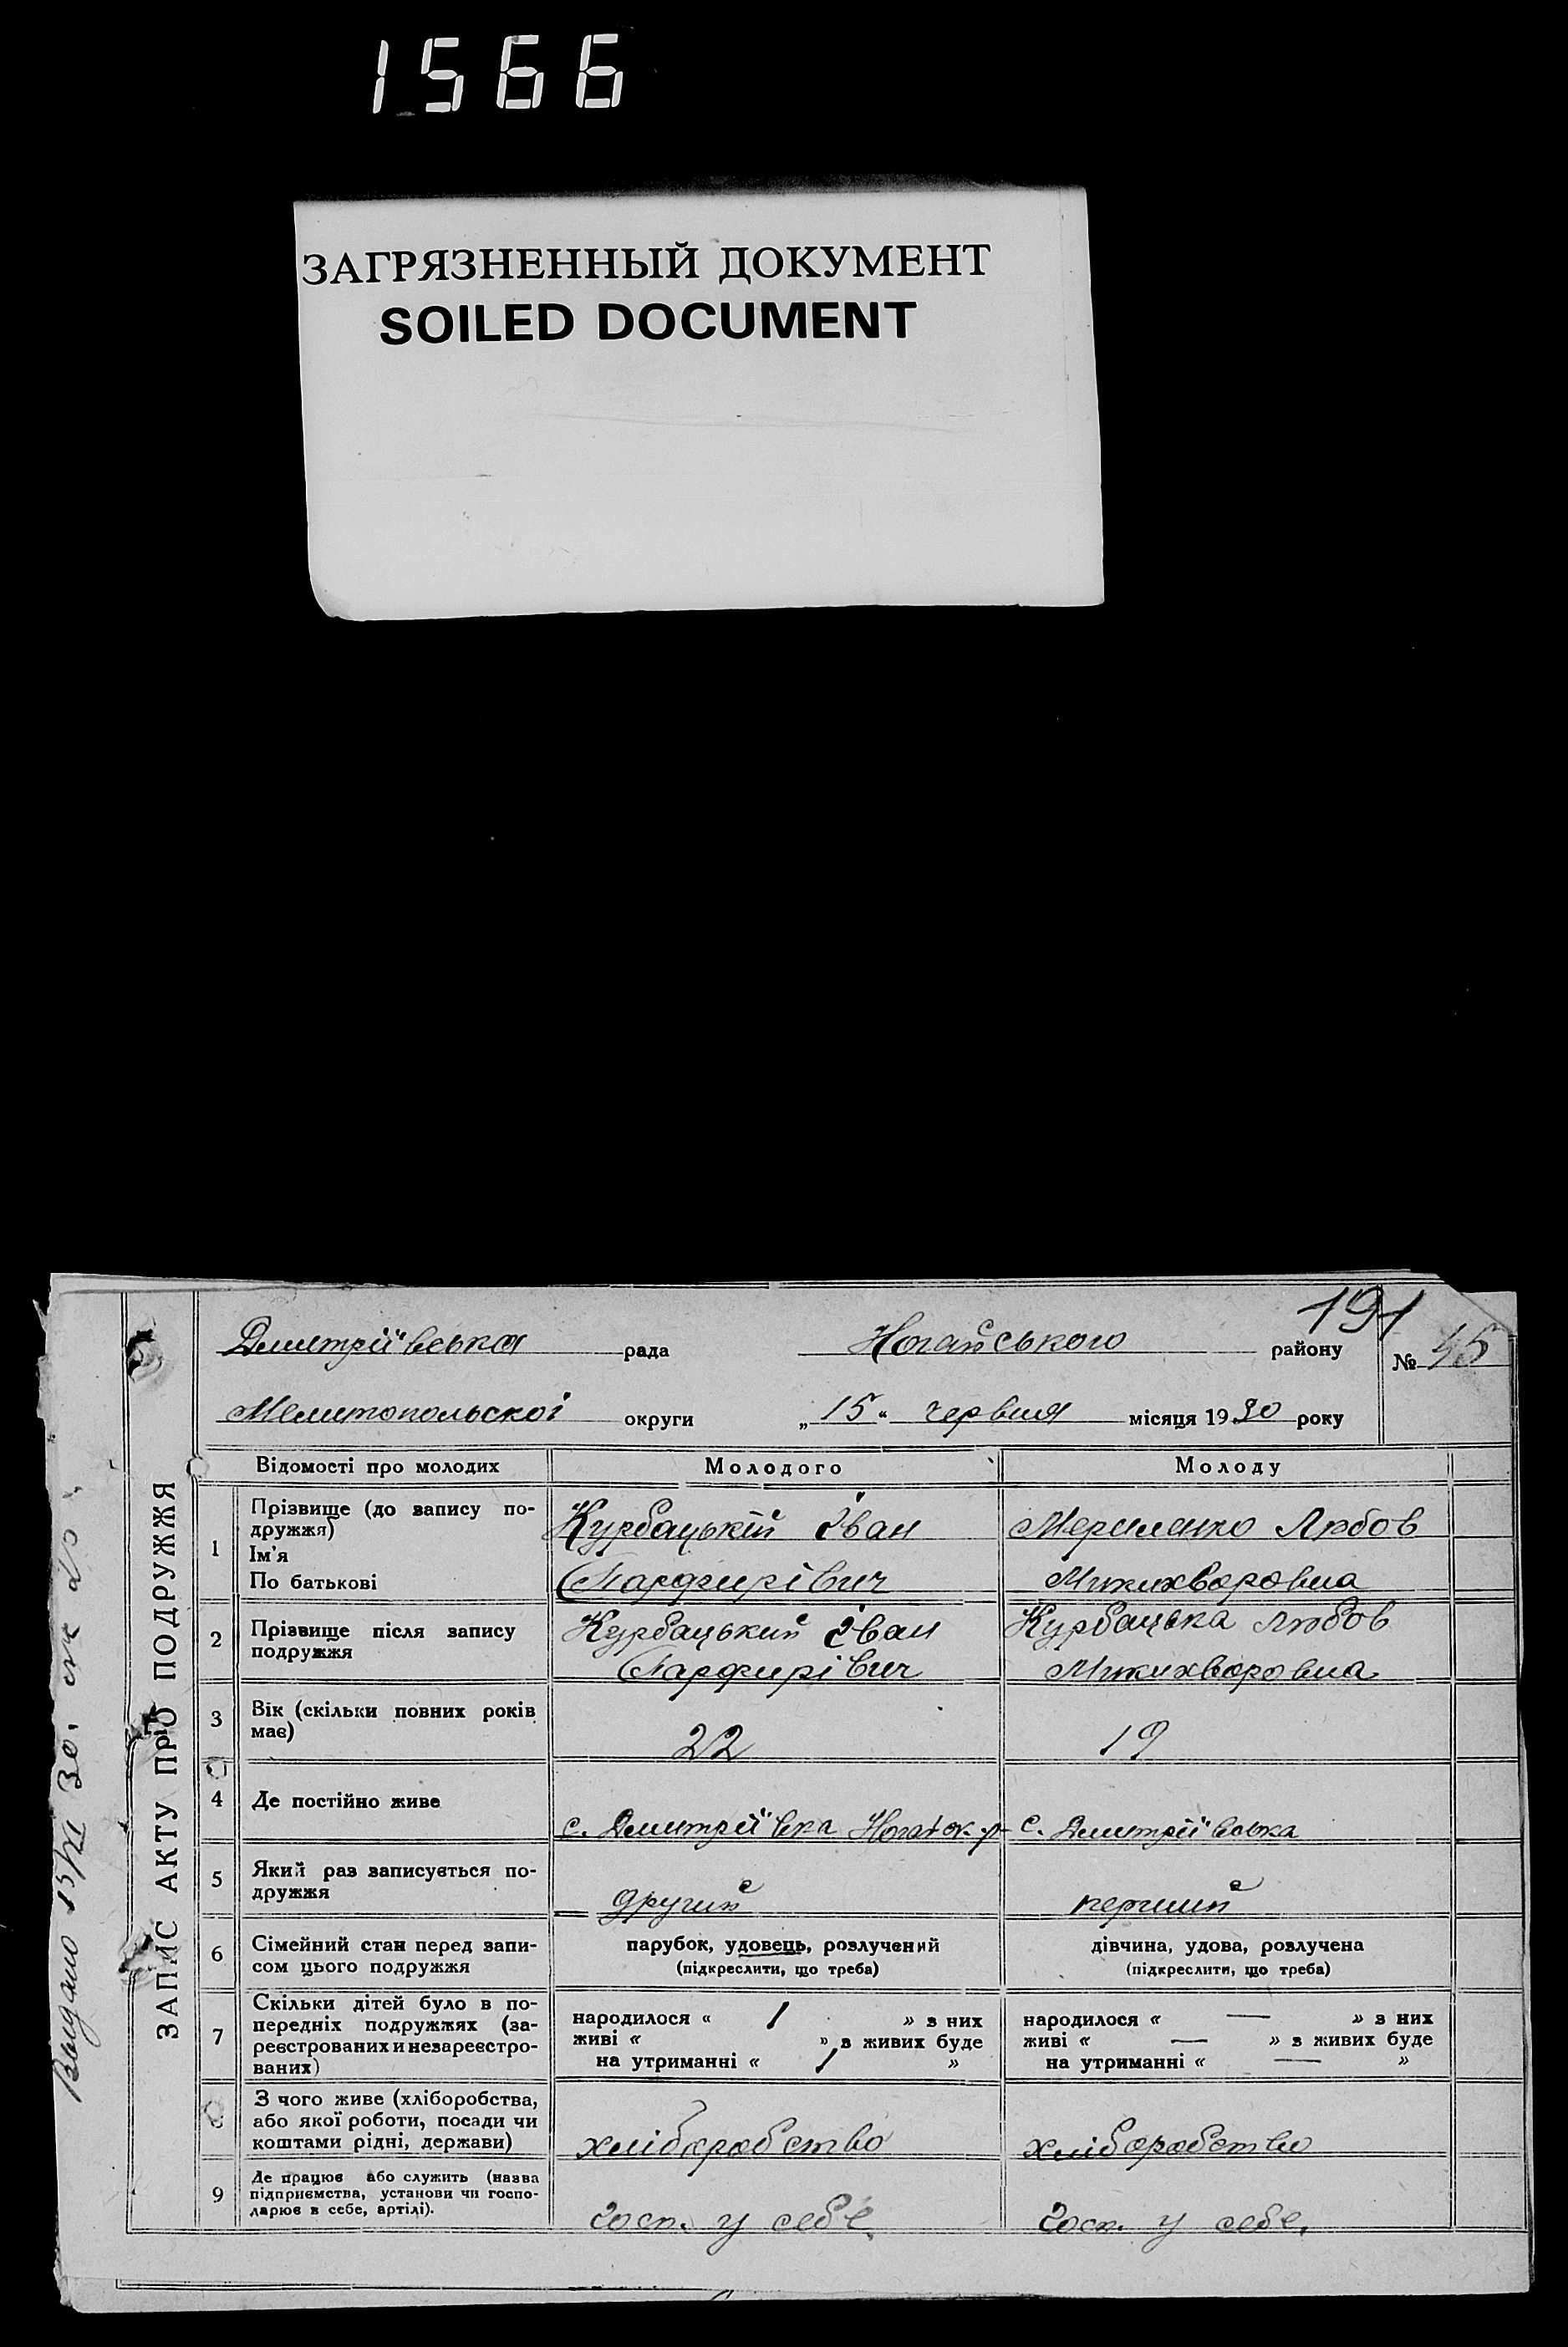 1566
ЗАГРЯЗНЕННЫЙ ДОКУМЕНТ
SOILED DOCUMENT
191
Дмитріївська рада Ногайського району № 45
Мелитопольскої округи „15“ червня місяця 1930 року
ЗАПИС АКТУ ПРО ПОДРУЖЖЯ
Видано 15/VI 30.
Відомості про молодих Молодого Молоду
1 Прізвище (до запису подружжя) Курбацький Іван Любов
Ім'я
По батькові Парфирівич Микихворовна
2 Прізвище після запису Курбацький Іван Курбацька Любов
подружжя Парфирівич Микихворовна
3 Вік (скільки повних років
має) 22 19
4 Де постійно живе с. Дмитріївка р- с. Дмитріївська
5 Який раз записується по-
дружжя другий перший
6 Сімейний стан перед запи- парубок, удовець, розлучений дівчина, удова, розлучена
сом цього подружжя (підкреслити, що треба) (підкреслити, що треба)
7 Скільки дітей було в по- народилося « 1 » з них народилося « — » з них
передніх подружжях (за- живі « » з живих буде живі « — » з живих буде
реєстрованих и незареєстро- на утриманні « 1 » на утриманні « — »
ваних)
З чого живе (хліборобства,
або якої роботи, посади чи
коштами рідні, держави) хліборобство хліборобство
9 Де працює або служить (назва
підприємства, установи чи госпо-
дарює в себе, артілі). госп. у себе. госп. у себе.